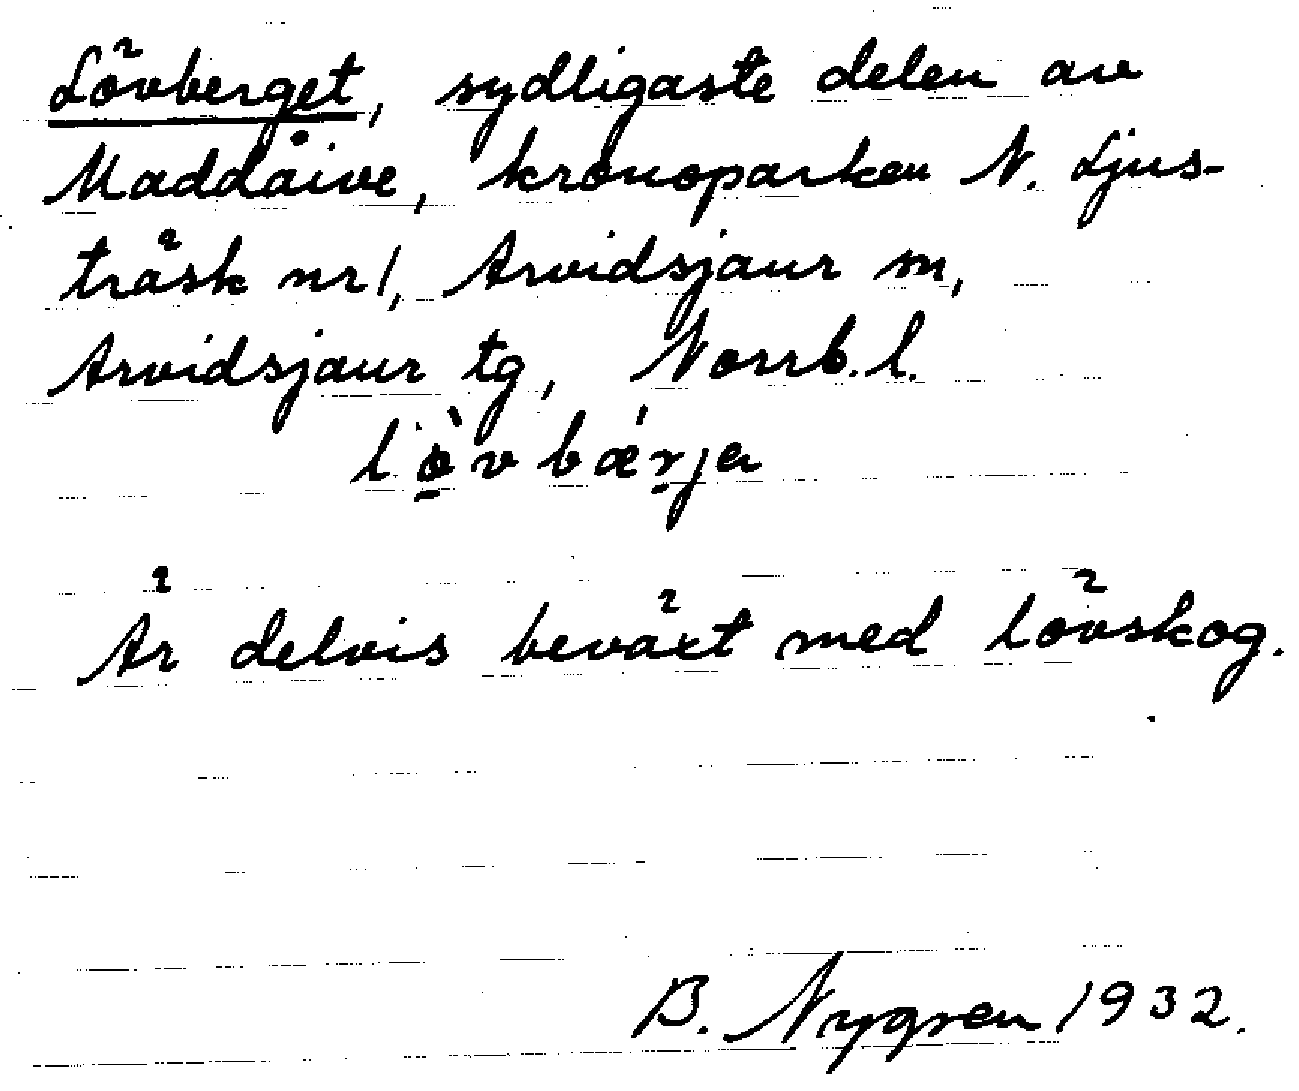 Lövberget, sydligaste delen av
Maddåive, kronoparken N. Ljus-
träsk nr 1, Arvidsjaur sn,
Arvidsjaur tg, Norrb. l.
lö̀v bǽrja
Är delvis beväxt med lövskog.
B. Nygren 1932.